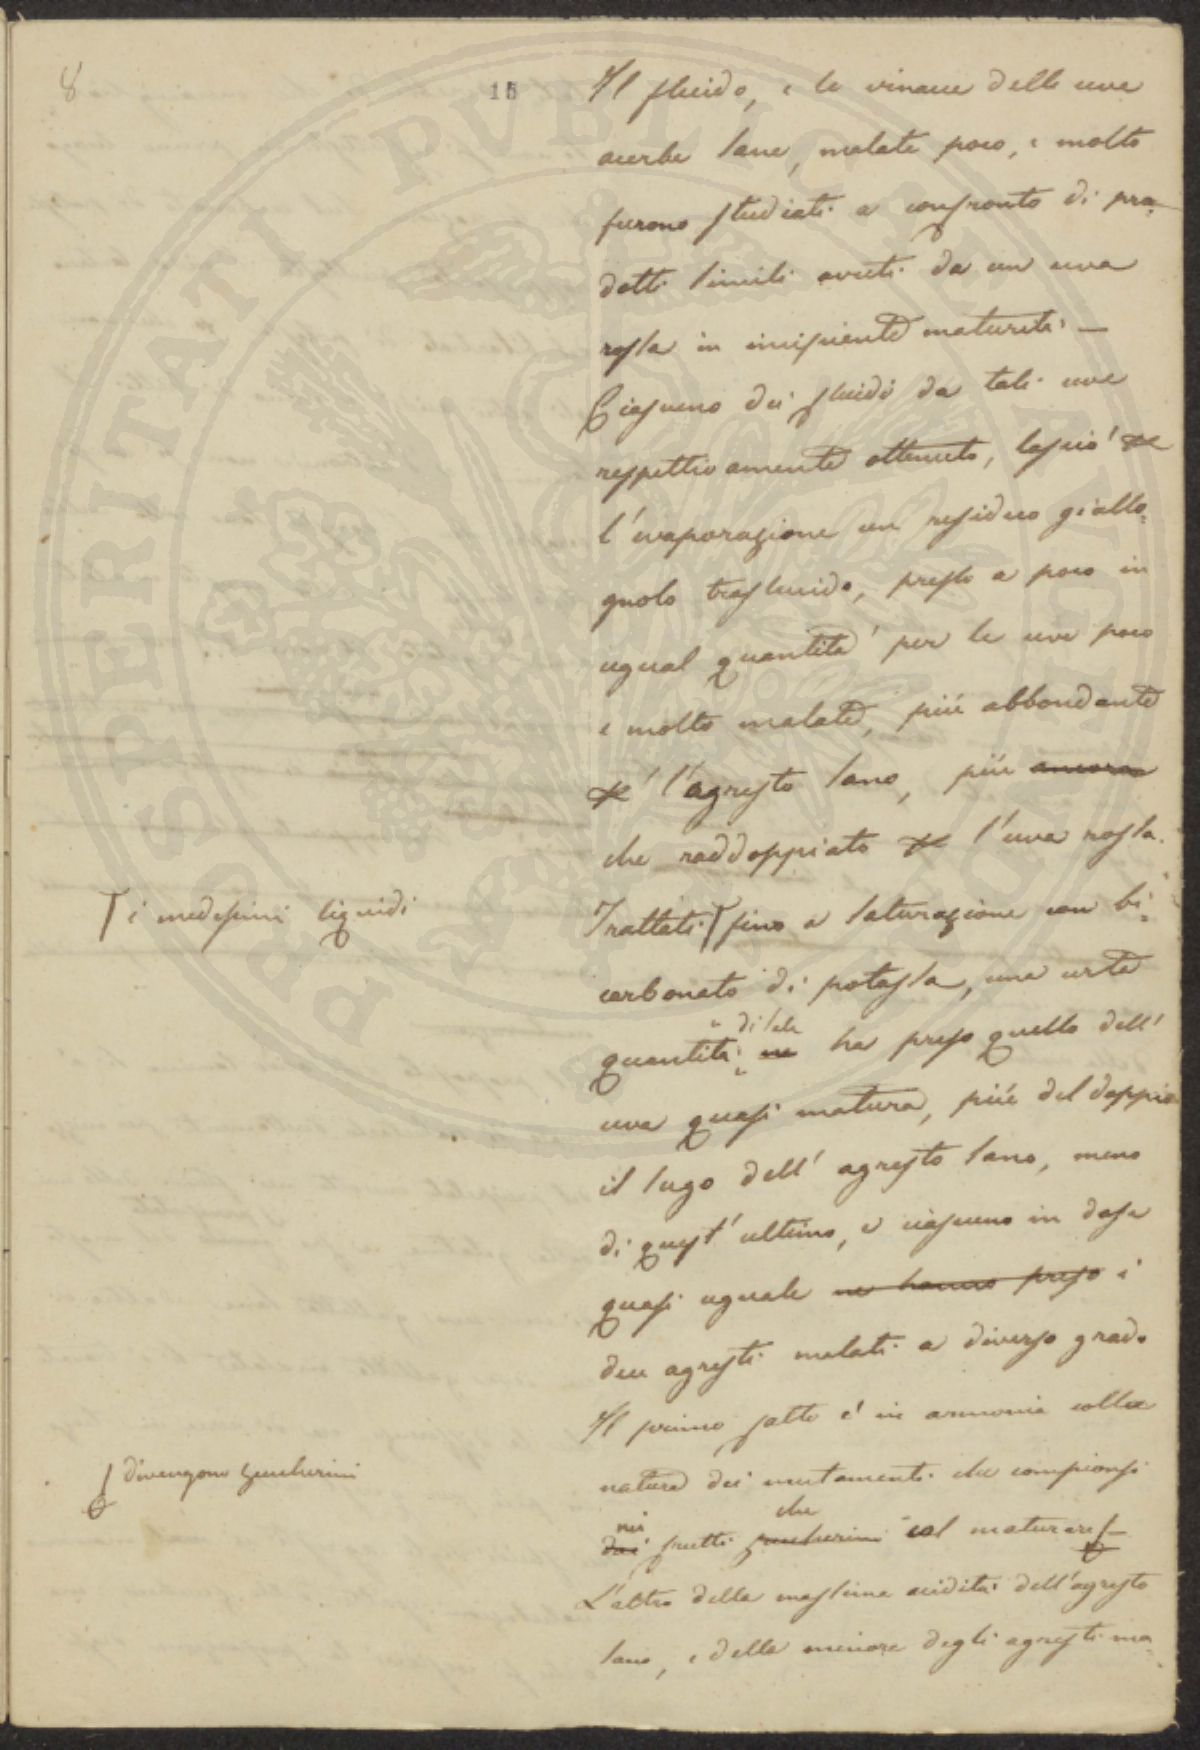 8
15
Il fluido, e le vinacce delle uve
acerbe sane, malate poco, e molto
furono studiati a confronto di pro-
dotti simili avuti da un uva
rossa in incipiente maturità —
Ciascuno dei fluidi da tali uve
respettivamente ottenuto, lasciò per
l'evaporazione un residuo giallo-
gnolo traslucido, presso a poco in
ugual quantità per le uve poco
e molto malate, più abbondante
per l'agresto sano, più ancora
che raddoppiato per l'uva rossa.
i medesimi liquidi
Trattati fino a saturazione con bi-
carbonato di potassa, una certa
di sale
quantità ne ha preso quello dell'
uva quasi matura, più del doppio
il sugo dell'agresto sano, meno
di quest'ultimo, e ciascuno in dose
quasi uguale ne hanno preso i
due agresti malati a diverso grado
Il primo fatto è in armonia colla
divengono zuccherini
natura dei mutamenti che compionsi
nei che
dai frutti zuccherini col maturare
L'altro della massima acidità dell'agresto
sano, e della minore degli agresti ma-
PROSPERITATI PVBLICAE AVGENDAE